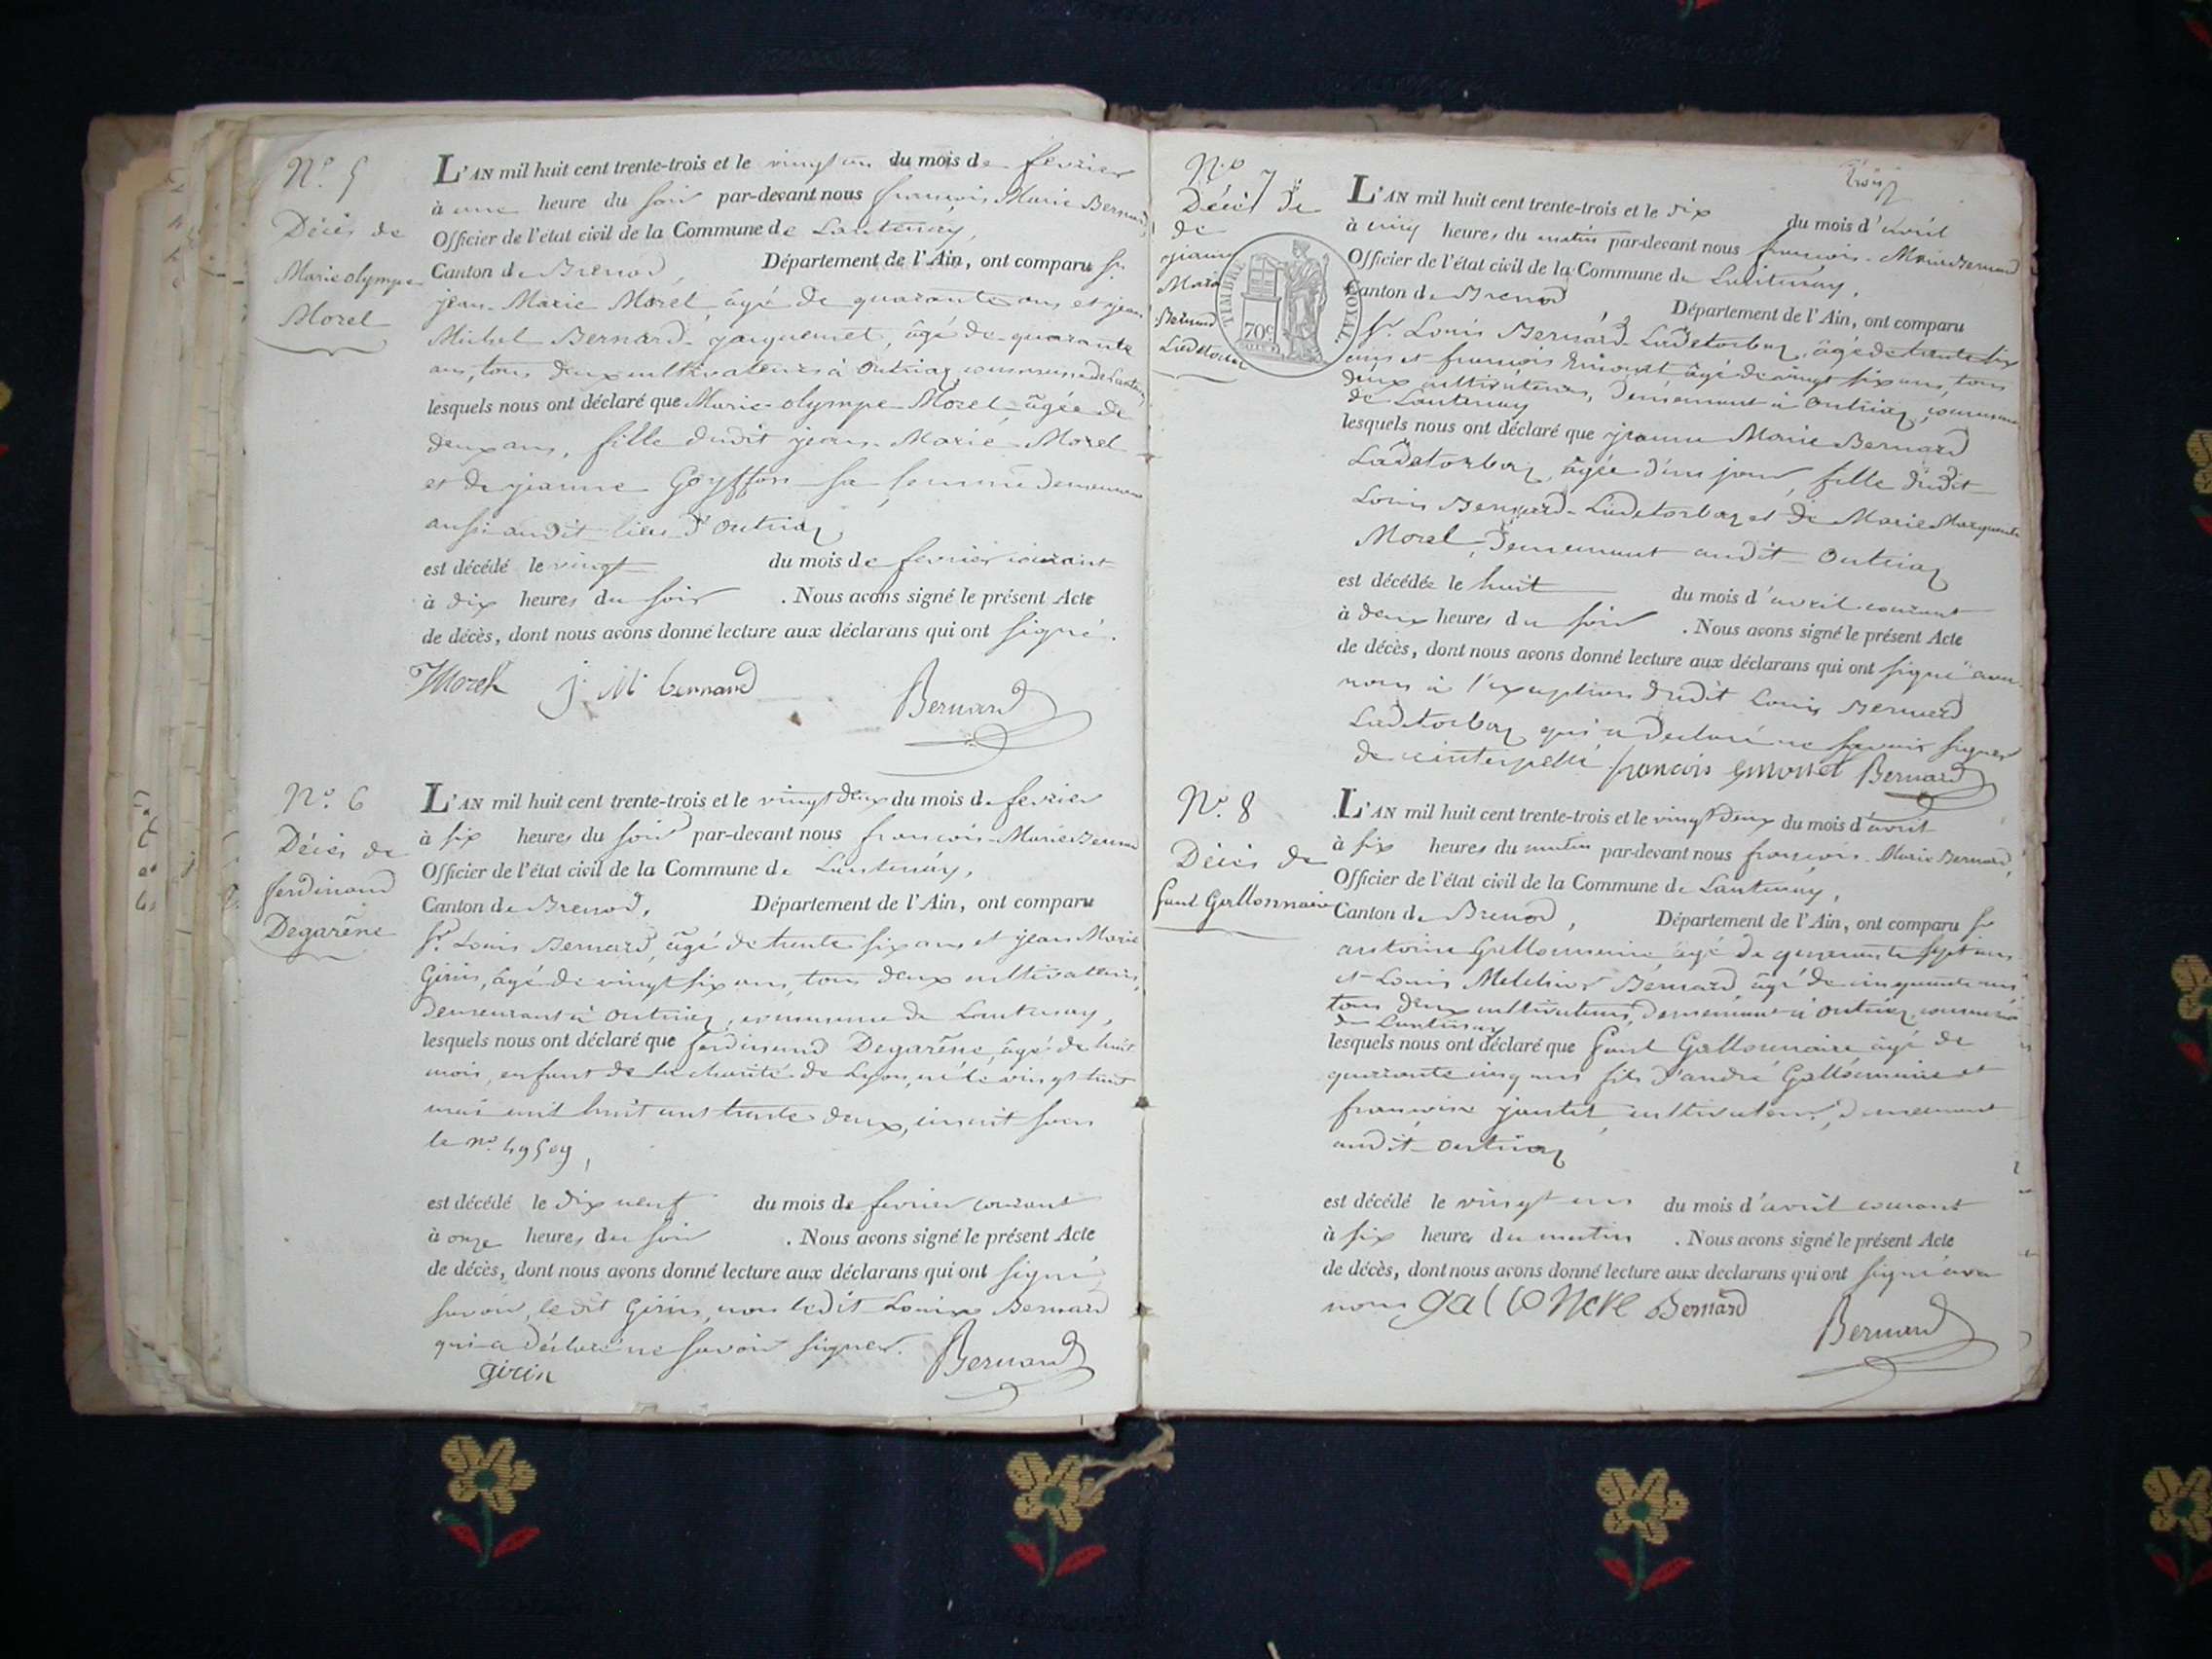 N.º 5
Décès de
Marie olympe
Morel
L'AN mil huit cent trente-trois et le vingt un du mois de fevrier
à une heure du soir par-devant nous françois Marie Bernard,
Officier de l'état civil de la Commune de Lantenay,
Canton de Brenod, Département de l'Ain, ont comparu sr.
jean-Marie Morel, âgé de quarante ans et jean
Michel Bernard-jacquemet, âgé de quarante
ans, tous deux cultivateurs à Outriaz, commune de Lantenay
lesquels nous ont déclaré que Marie-olympe Morel, âgée de
deux ans, fille dudit jean-Marie Morel
et de jeanne Goyffon sa femme demeurant
aussi audit lieu d'Outriaz
est décédé le vingt du mois de fevrier courant
à dix heures du soir . Nous avons signé le présent Acte
de décès, dont nous avons donné lecture aux déclarans qui ont signé.
Morel j. M. bernard Bernard
N.º 6
Décès de
ferdinand
Degarêne
L'AN mil huit cent trente-trois et le vingt deux du mois de fevrier
à six heures du soir par-devant nous françois-Marie Bernard
Officier de l'état civil de la Commune de Lantenay,
Canton de Brenod, Département de l'Ain, ont comparu
sr. Louis Bernard, âgé de trente six ans et jean Marie
Girin, âgé de vingt six ans, tous deux cultivateurs,
demeurant à Outriaz, commune de Lantenay,
lesquels nous ont déclaré que ferdinand Degarêne, âgé de huit
mois, enfant de la charité de Lyon, né le vingt huit
mai mil huit cent trente deux, inscrit sous
le nº 49509,
est décédé le dix neuf du mois de fevrier courant
à onze heures du soir . Nous avons signé le présent Acte
de décès, dont nous avons donné lecture aux déclarans qui ont signé
savoir, ledit Girin, non ledit Louis Bernard
qui a déclaré ne savoir signer.
girin Bernard
trois
N.º 7
Décès de
de
jeanne
Marie
Bernard
Ladetorbaz
TIMBRE ROYAL
70c
L'AN mil huit cent trente-trois et le dix du mois d'avril
à cinq heures du matin par-devant nous françois-Marie Bernard
Officier de l'état civil de la Commune de Lantenay,
Canton de Brenod Département de l'Ain, ont comparu
sr. Louis Bernard-Ladetorbaz, âgé de trente six
ans et françois âgé de vingt six ans, tous
deux cultivateurs, demeurant à Outriaz, commune
de Lantenay
lesquels nous ont déclaré que jeanne Marie Bernard
Ladetorbaz, âgée d'un jour, fille dudit
Louis Bernard-Ladetorbaz et de Marie Marguerite
Morel, demeurant audit Outriaz
est décédée le huit du mois d'avril courant
à deux heures du soir . Nous avons signé le présent Acte
de décès, dont nous avons donné lecture aux déclarans qui ont signé avec
nous à l'exception dudit Louis Bernard
Ladetorbaz qui a déclaré ne savoir signer
de ce interpellé. françois Bernard
N.º 8
Décès de
Gallonnaire
L'AN mil huit cent trente-trois et le vingt deux du mois d'avril
à six heures du matin par-devant nous françois-Marie Bernard,
Officier de l'état civil de la Commune de Lantenay,
Canton de Brenod, Département de l'Ain, ont comparu sr
antoine Gallonnaire âgé de quarante sept ans
et Louis Melchior Bernard âgé de cinquante ans
tous deux cultivateurs, demeurant à Outriaz, commune
de Lantenay
lesquels nous ont déclaré que Gallonnaire âgé de
quarante cinq ans fils d'andré Gallonnaire et
françoise jantet, cultivateur, demeurant
audit Outriaz
est décédé le vingt un du mois d'avril courant
à six heures du matin . Nous avons signé le présent Acte
de décès, dont nous avons donné lecture aux déclarans qui ont signé avec
nous Bernard Bernard